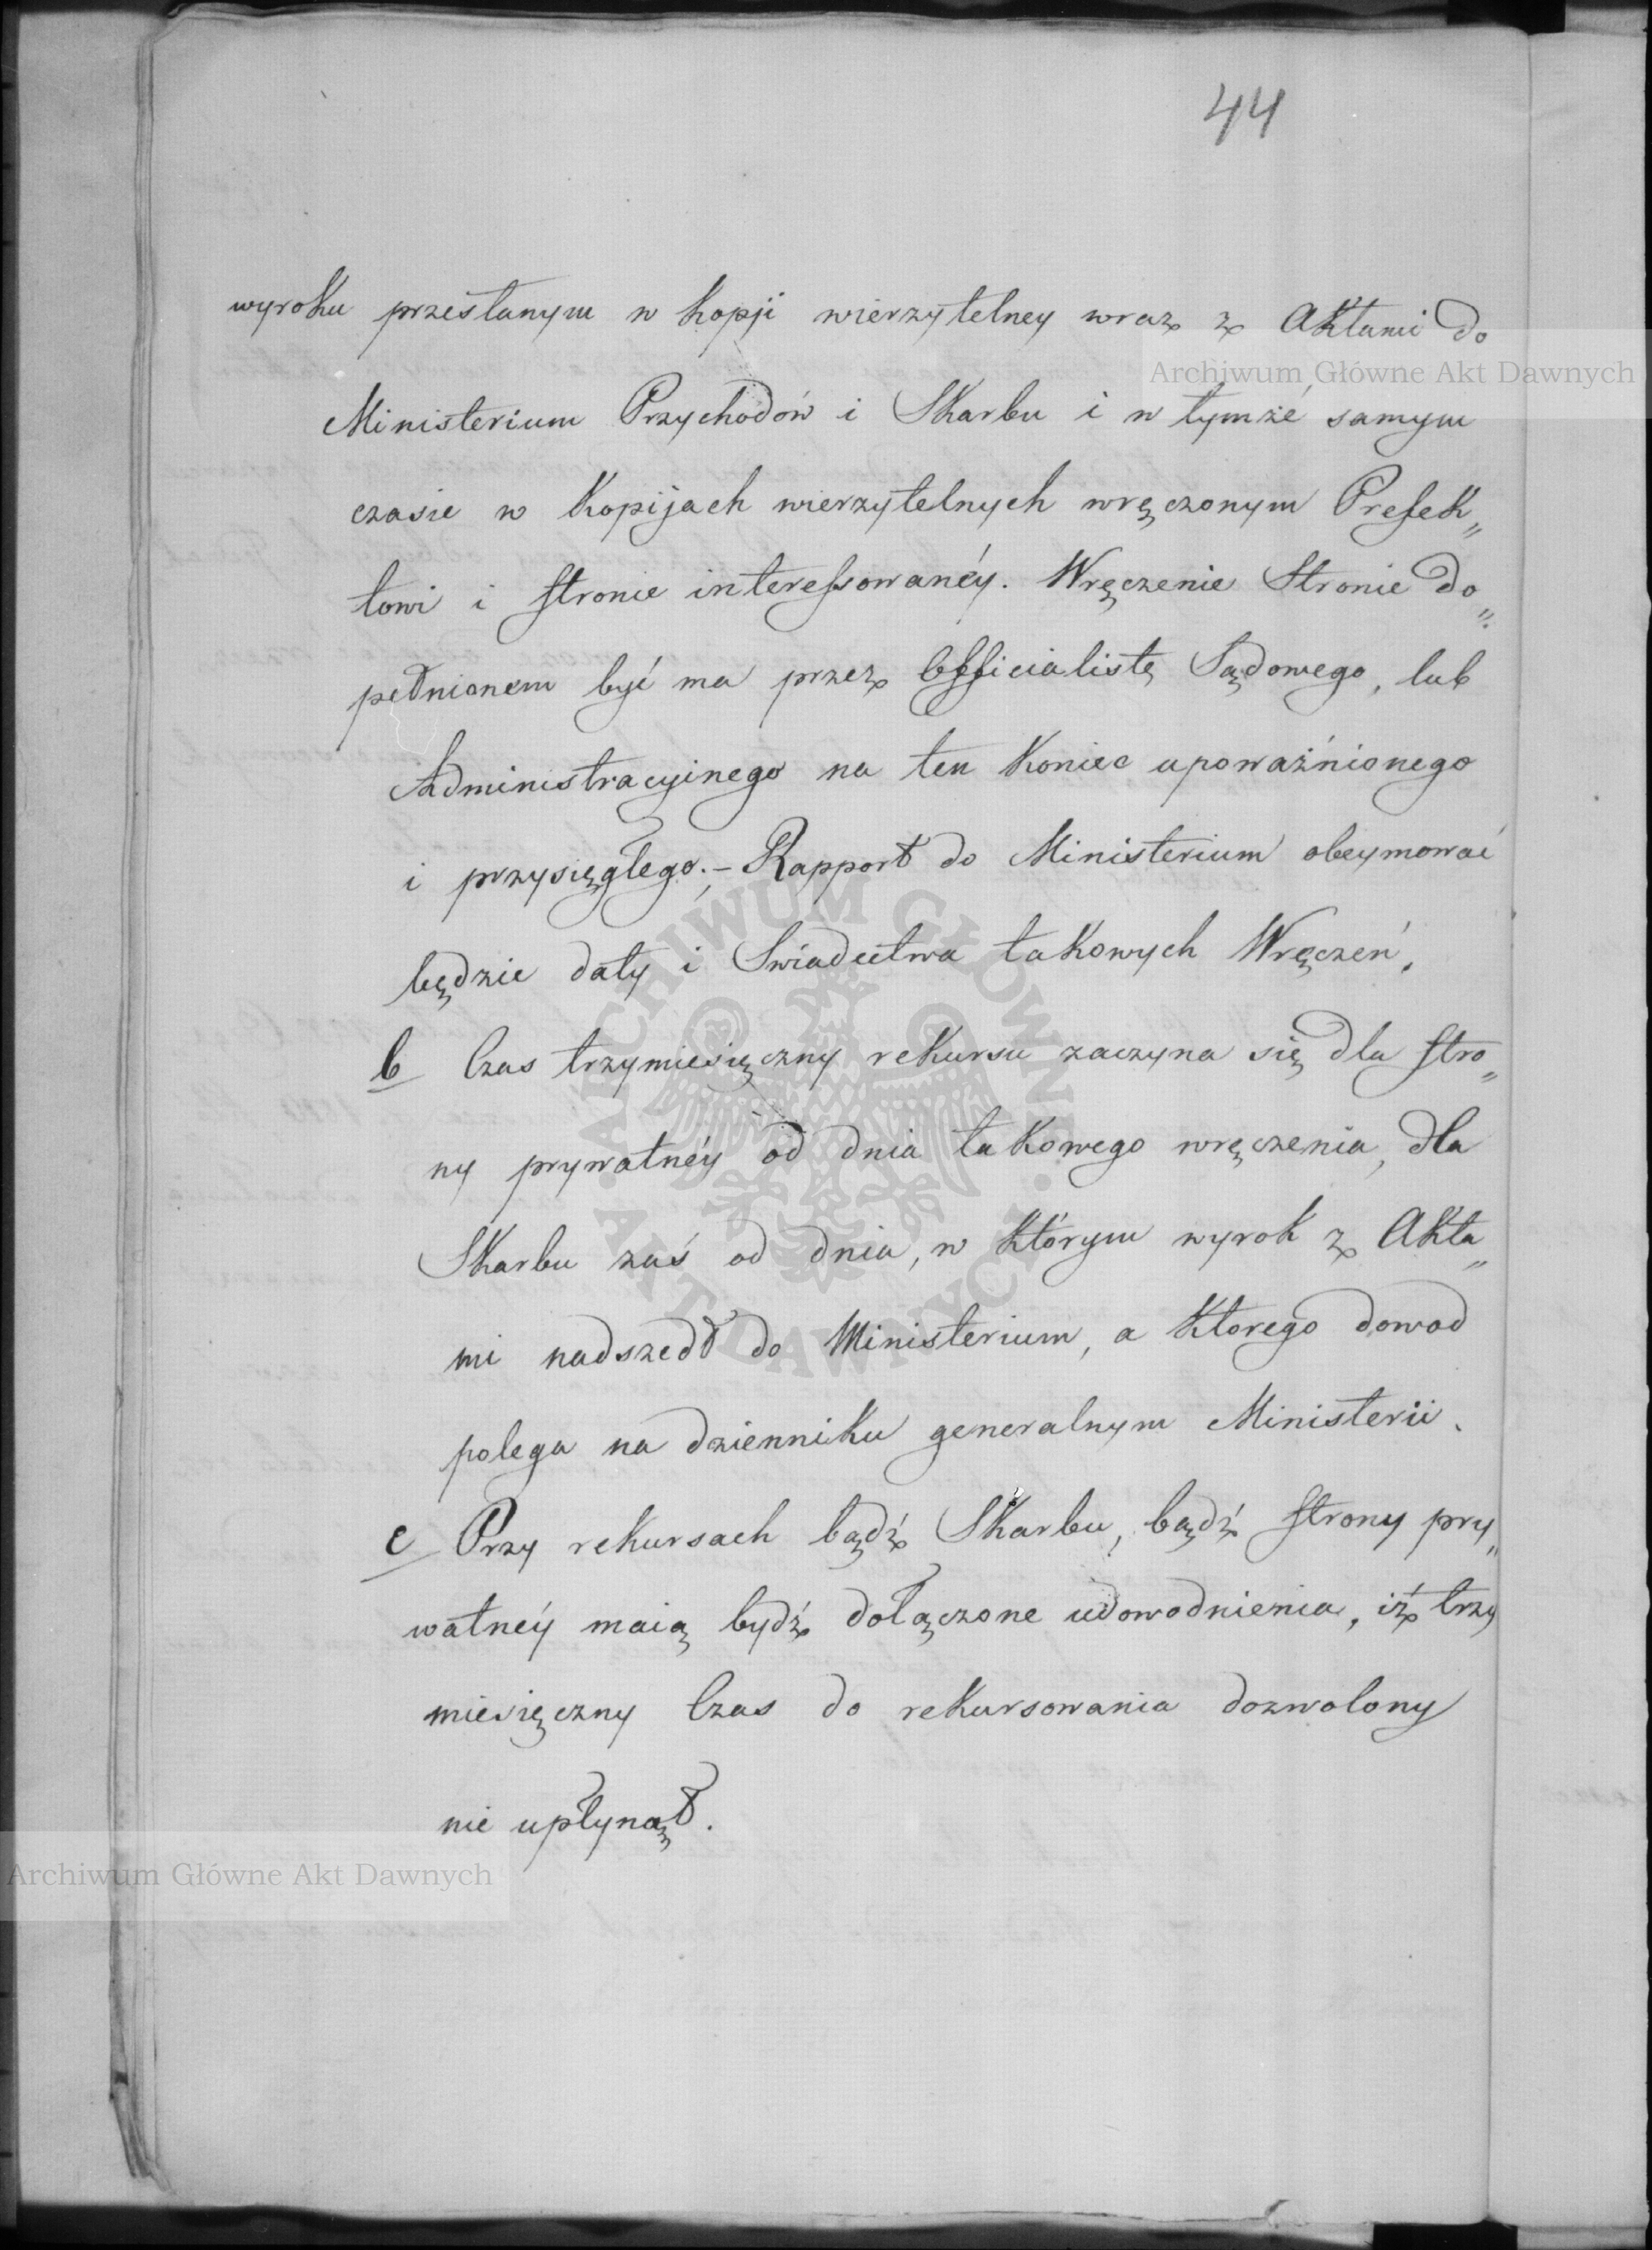 44
wyroku przesłanym w kopji wierzytelney wraz z Aktami do
Archiwum Główne Akt Dawnych
Ministerium Przychodów i Skarbu i w tymże samym
czasie w Kopijach wierzytelnych wręczonym Prefek„
towi i stronie interessowanéy. Wręczenie Stronie do„
pełnionem być ma przez Officialistę Sądowego, lub
Administracyinego na ten Koniec upoważnionego
i przysięgłego.– Rapport do Ministerium obeymować
będzie daty i Swiadectwa takowych Wręczeń.
b Czas trzymiesięczny rekursu zaczyna się dla stro„
ny prywatnéy od dnia takowego wręczenia, dla
Skarbu zaś od dnia, w którym wyrok z Akta„
mi nadszedł do Ministerium, a ktorego dowod
polega na dzienniku generalnym Ministerii.
c Przy rekursach bądź Skarbu, bądź strony pry„
watnéy maią bydź dołączone udowodnienia, iż trzy
miesięczny Czas do rekursowania dozwolony
nie upłynął.
Archiwum Główne Akt Dawnych
ARCHIWUM GŁÓWNE AKT DAWNYCH